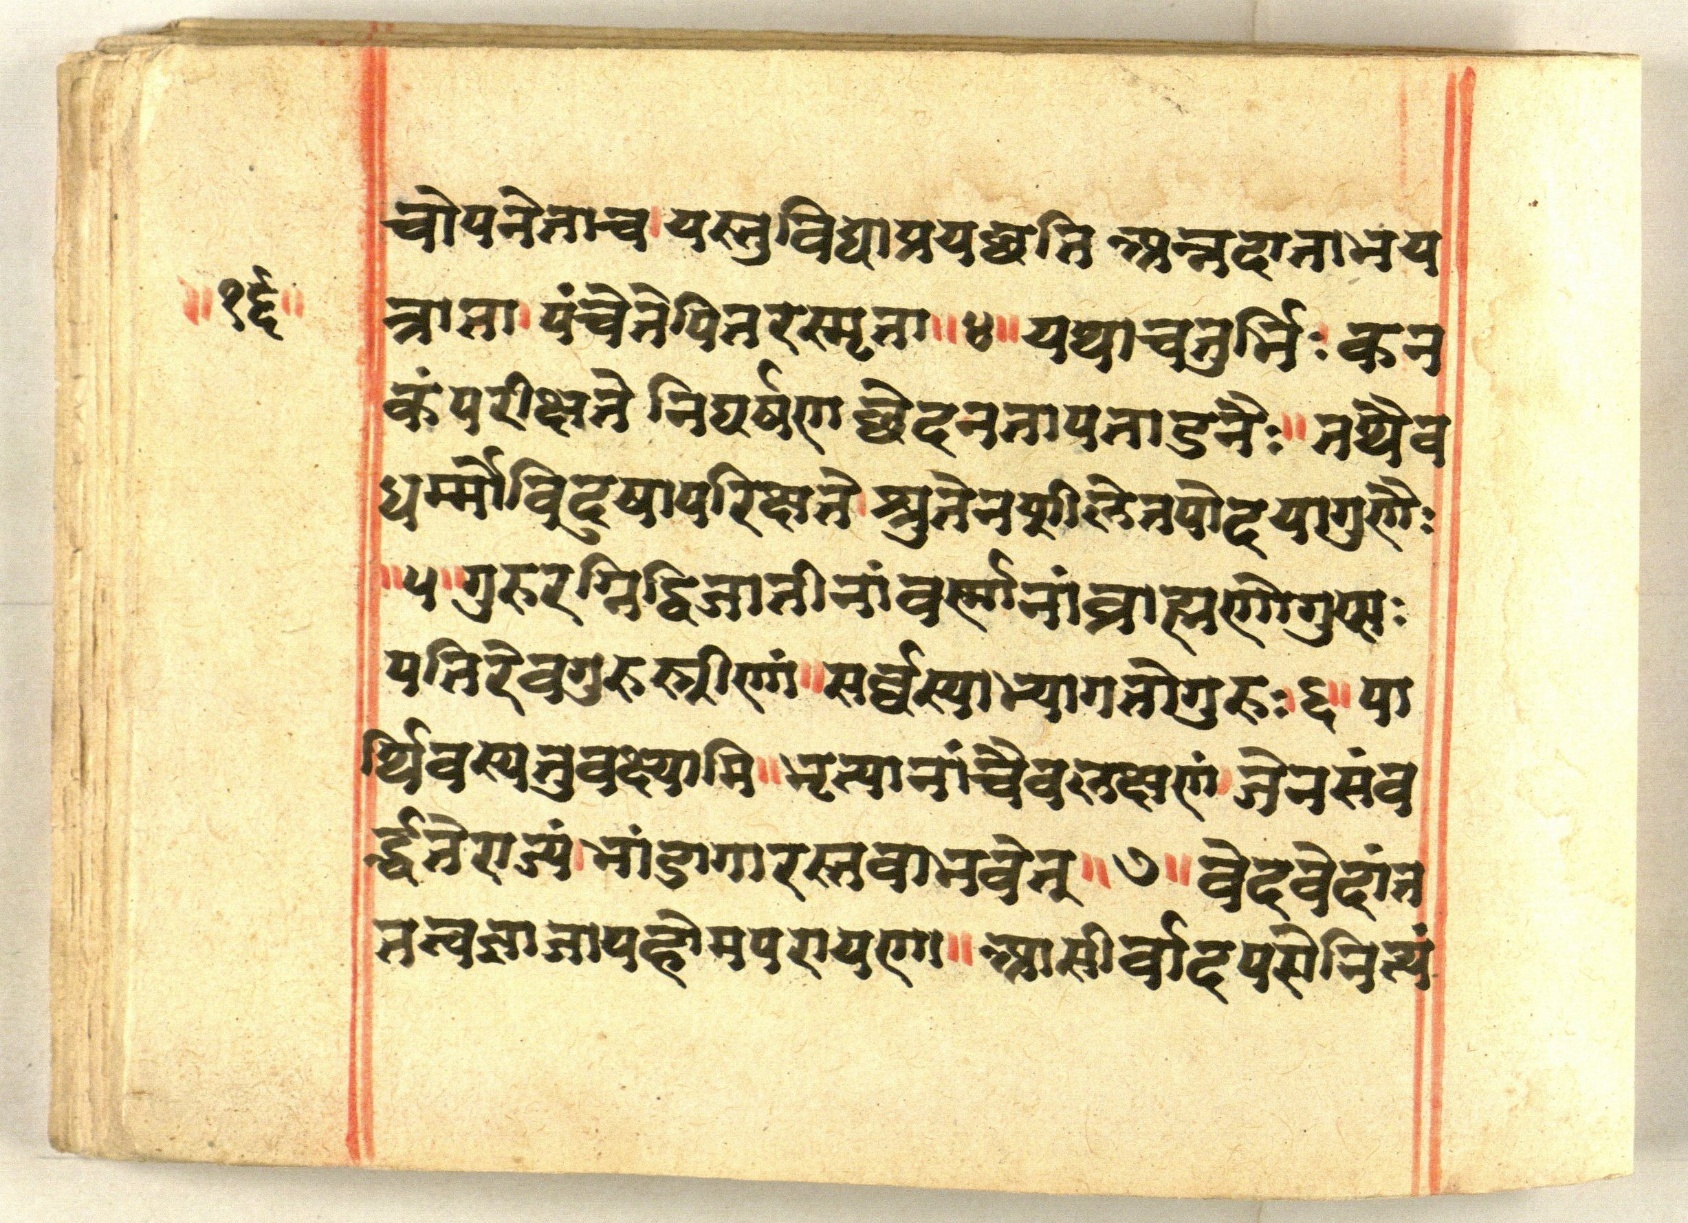 चोपनेताच। यस्तुविद्याप्रयछति अन्नदाताभय
॥१६॥
त्राता। पंचेतेपितरस्मृता॥४॥ यथाचतुर्भिः कन
कंपरीक्षते निघर्षणछेदनतापताडनैः॥ तथैव
धर्म्मोविदुषापरिक्षते। श्रुतेनशीलेनपोदयागुणैः
॥५॥गुरुरग्निद्विजातीनांवर्णानांब्राह्मणोगुरुः
पतिरेवगुरुस्त्रीणां॥सर्व्वस्याभ्यागतोगुरुः६॥ पा
र्थिवस्यतुवक्ष्यामि॥भृत्यानांचैवलक्षणं। जेनसंव
र्द्धतेराज्यं। भांडागारस्तवाभवेत्॥७॥ वेदवेदांत
तत्वज्ञाजापहोमपरायणा॥ आसीर्वादपसेनित्यं